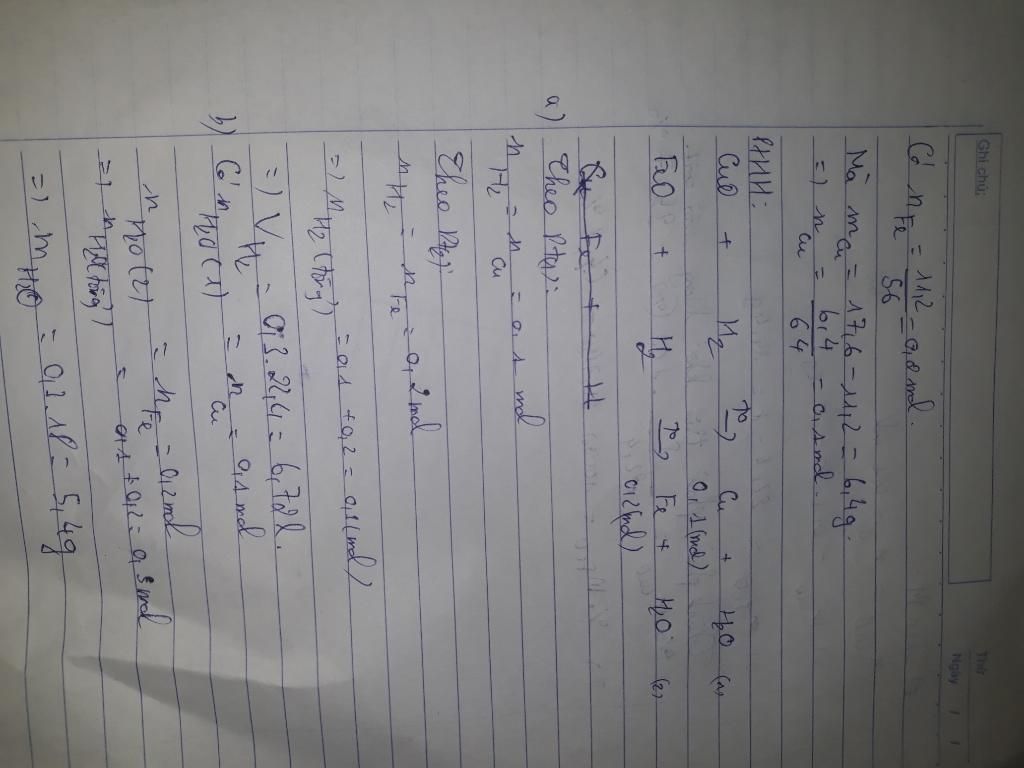 Ghi chú:
Thứ
Ngày / /
Có n Fe = 11,2 / 56 = 0,2 mol.
Mà m Cu = 17,6 - 11,2 = 6,4g.
=) n Cu = 6,4 / 64 = 0,1 mol.
PTHH:
CuO + H2 to→ Cu + H2O (1)
0,1 (mol)
FeO + H2 to→ Fe + H2O (2)
0,2 (mol)
a) Theo Pt(1):
n H2 = n Cu = 0,1 mol
Theo Pt(2):
n H2 = n Fe = 0,2 mol
=) n H2 (tổng) = 0,1 + 0,2 = 0,3 (mol)
=) V H2 = 0,3.22,4 = 6,72 l.
b) Có n H2O (1) = n Cu = 0,1 mol
n H2O (2) = n Fe = 0,2 mol
=) n H2O (tổng) = 0,1 + 0,2 = 0,3 mol
=) m H2O = 0,3.18 = 5,4g